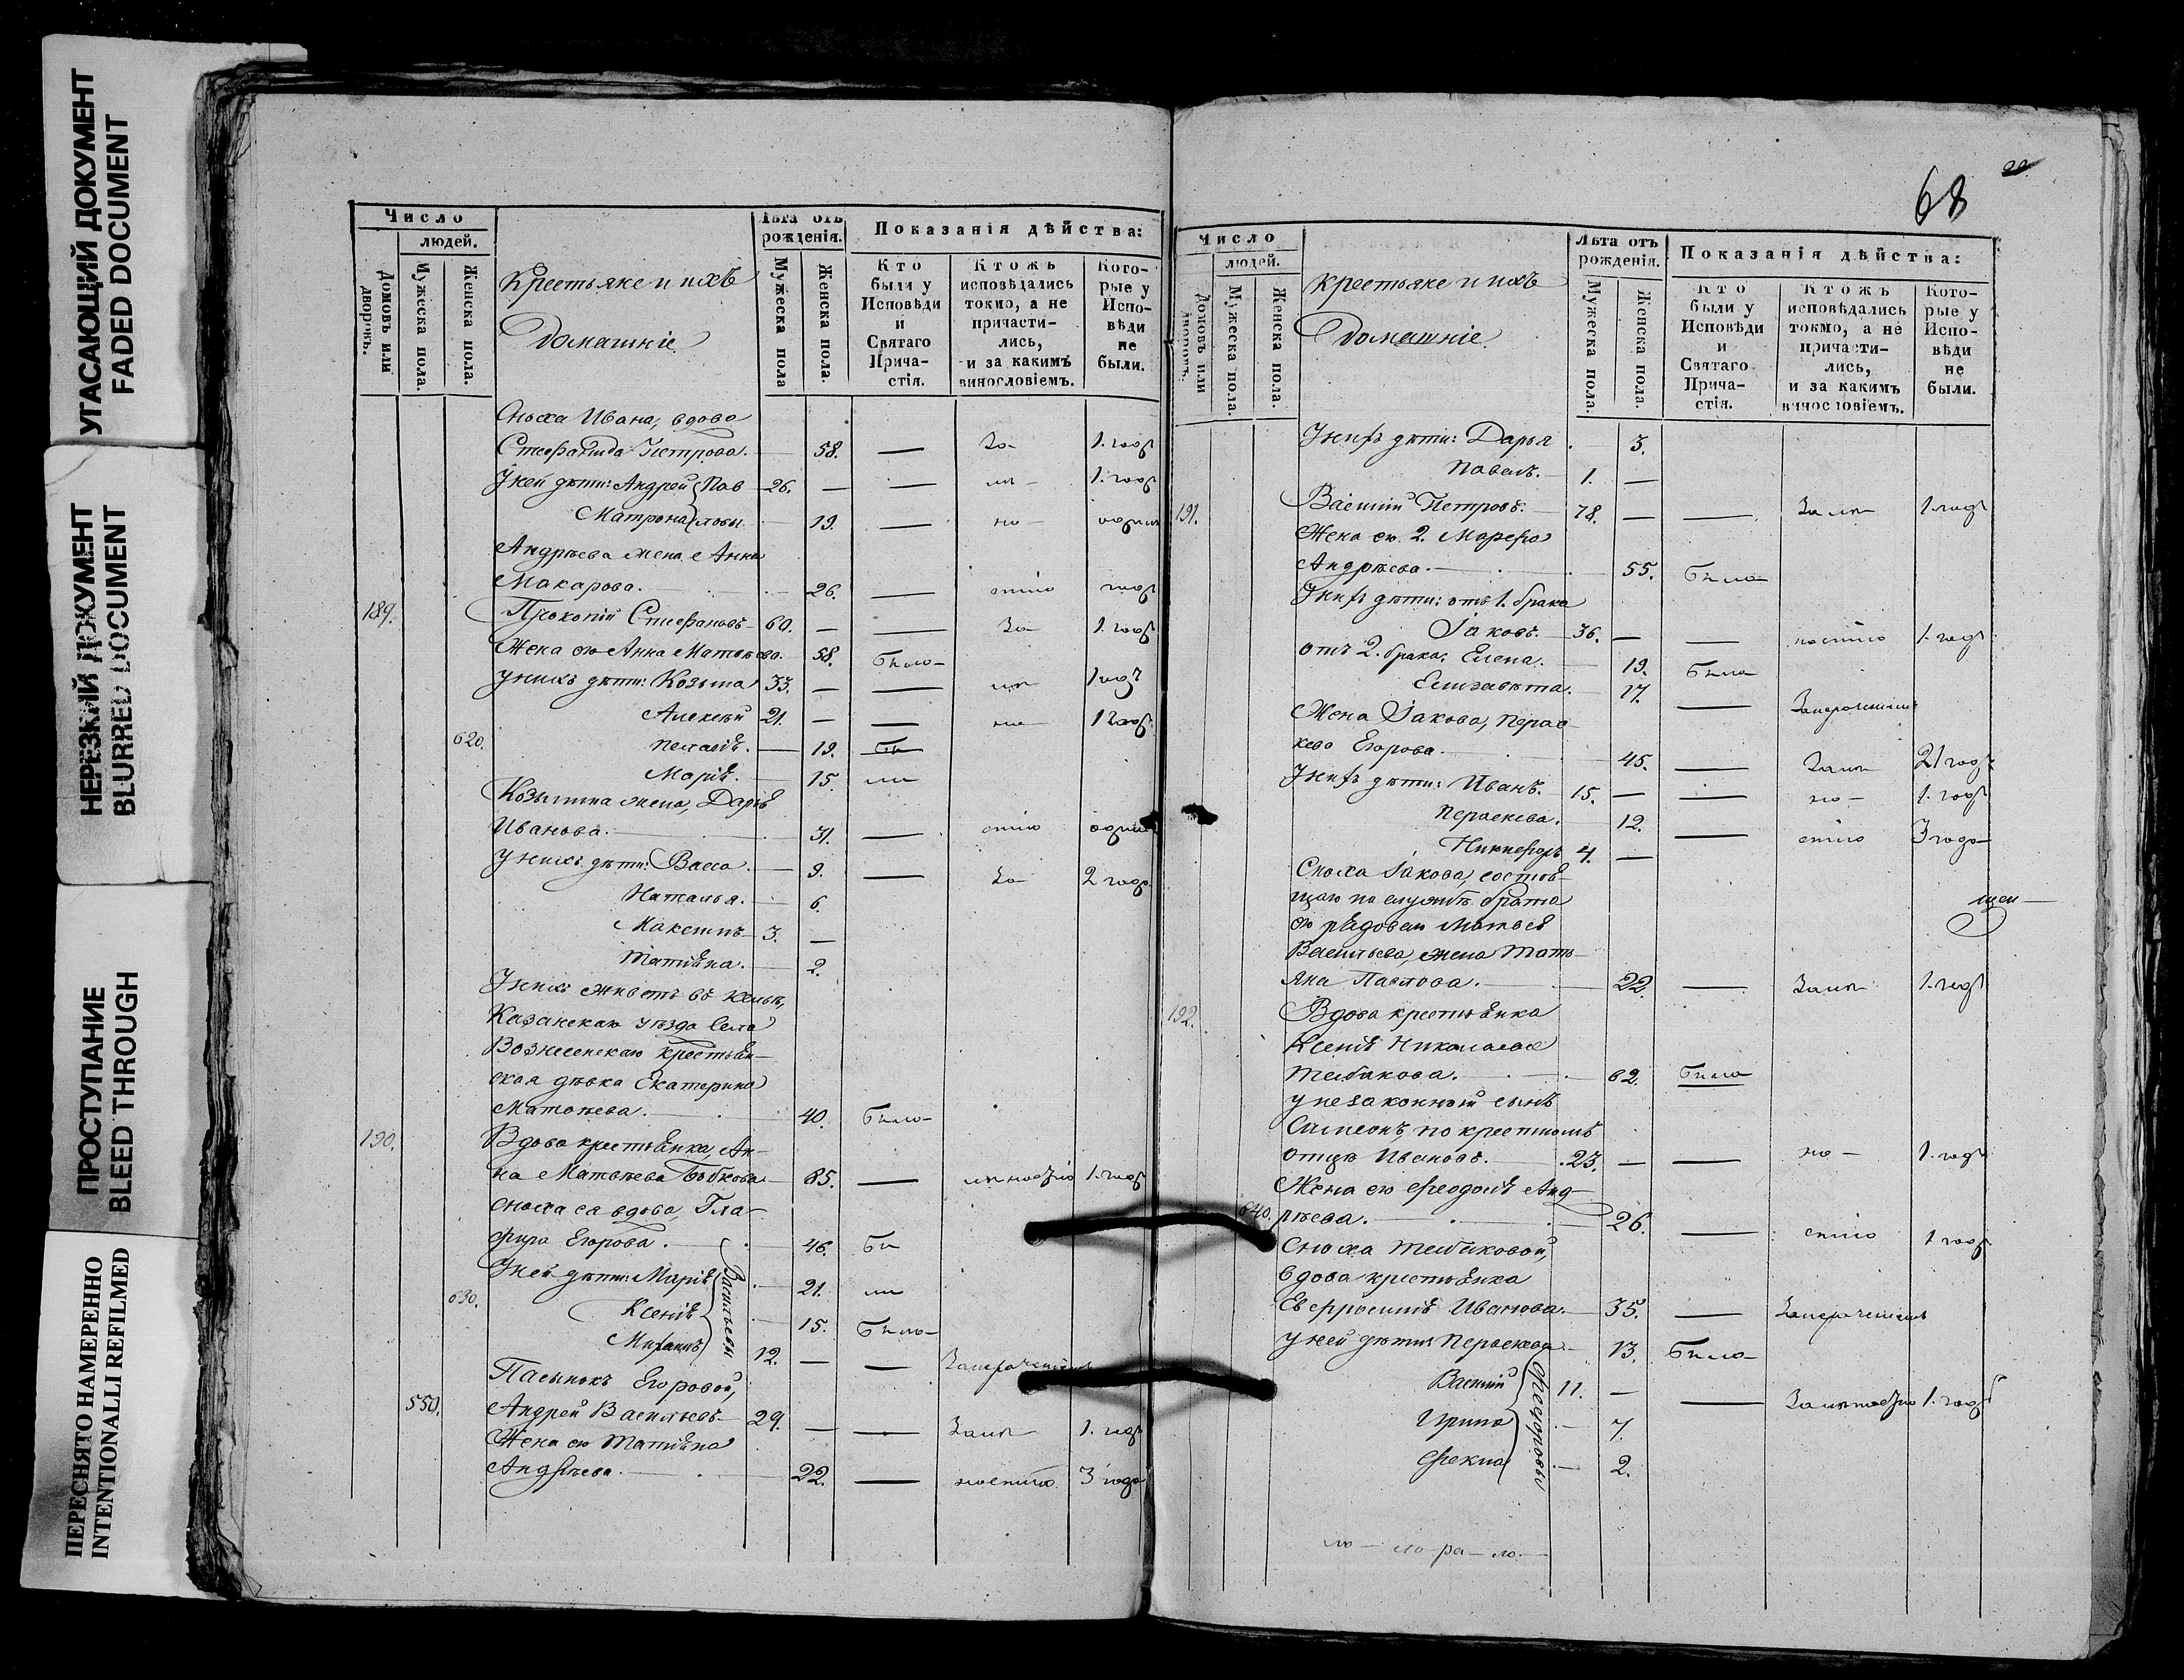 УГАСАЮЩИЙ ДОКУМЕНТ
FADED DOCUMENT
НЕРЕЗКИЙ ДОКУМЕНТ
BLURRED DOCUMENT
ПРОСТУПАНИЕ
BLEED THROUGH
ПЕРЕСНЯТО НАМЕРЕННО
INTENTIONALLI REFILMED
Число
людей.
Домовъ или дворовъ.
Мужеска пола.
Женска пола.
Крестьяне и ихъ
Домашніе
Лѣта отъ рожденія.
Мужеска пола
Женска пола.
Показанія дѣйства:
Кто были у Исповѣди и Святаго Прича- стія.
Ктожъ исповѣдались токмо, а не причасти- лись, и за какимъ винословіемъ.
Кото- рые у Испо- вѣди не были.
Сноха Ивана, вдова
Стефанида Петрова. 58. — За- 1. годъ
У ней дѣти: Андрей Пав 26. — — 1. годъ
Матрона ловы 19. — но-
Андрѣева жена Анна
Макарова. 26. — стію годъ
189. Прокопій Стефановъ 60. — — За- 1. годъ
Жена его Анна Матвѣева. 58. Была
У нихъ дѣти: Козьма 33. — — 1 годъ
Алексѣй 21. — — 1 годъ
620. Пелагія. — 19. Бы
Марія. 15. ли
Козьмина жена, Дарья
Ивановa. 31. — стію
У нихъ дѣти: Васса. 9. — За- 2 года
Наталья. 6.
Максимъ 3. —
Татіяна. 2.
У нихъ живетъ въ кельѣ,
Казанскаго уѣзда села
Вознесенскаго крестьян-
ская дѣвка Екатерина
Матвѣева. 40. Была
190. Вдова крестьянка, Ан-
на Матвѣева Бобкова 85. — 1. годъ
сноха ея вдова, Гла-
фира Егорова. 46. Бы
У ней дѣти: Марія 21. ли
630. Ксенія 15. Была
Михаилъ 12. — —
Васильевы
Пасынокъ Егоровой,
550. Андрей Васильевъ 29. — — 1. годъ
Жена его Татіяна
Андрѣева. 22. — 3 года
68
Число
людей.
Домовъ или дворовъ.
Мужеска пола.
Женска пола.
крестьяне и ихъ
Домашніе
Лѣта отъ рожденія.
Мужеска пола.
Женска пола.
Показанія дѣйства:
Кто были у Исповѣди и Святаго Прича- стія.
Ктожъ исповѣдались токмо, а не причасти- лись, и за какимъ винословіемъ.
Кото- рые у Испо- вѣди не были.
У нихъ дѣти: Дарья 3.
Павелъ. 1. —
191. Василій Петровъ. 78. — — 1 годъ
Жена его 2. Марѳа
Андрѣева. 55. Была
У нихъ дѣти: отъ 1. брака
Іаковъ. 36. — — 1. годъ
отъ 2. брака: Елена. 19. Была
Елизавета. 17. —
Жена Іакова, Парас-
кева Егорова. 45. — 21 годъ
У нихъ дѣти: Иванъ. 15. — — но- 1. годъ
Параскева. 12. — стію 3 года
Никифоръ 4. —
Сноха Іакова, состоя-
щаго на службѣ брата
его рядоваго Матвея
Васильева, жена Тать-
яна Павлова. 22. — 1. годъ
192. Вдова крестьянка
Ксенія Николаева
62. Была
у незаконный сынъ
Симеонъ, по крестному
отцѣ Ивановъ. 23. — — но- 1. годъ
Жена его Ѳеодосія Анд-
640. рѣева. 26. — стію 1 годъ
Сноха
вдова крестьянка
Евфросинія Иванова. 35. —
У ней дѣти: Параскева 13. Была
Василій 11. — — 1. годъ
Ирина 7.
Ѳекла 2.
Ѳеодоровы